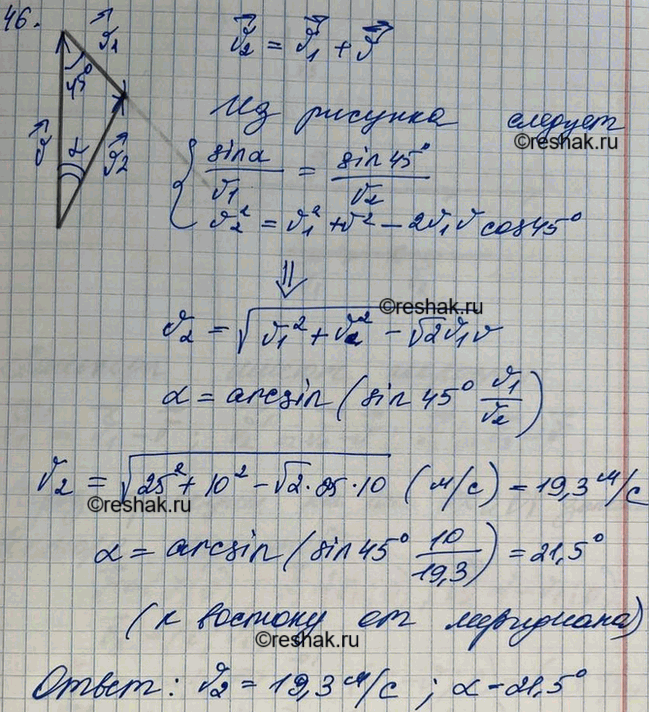 46.
v⃗₁
45°
v⃗
α
v⃗₂
v⃗₂ = v⃗₁ + v⃗
Из рисунка следует
©reshak.ru
{ sinα/v₁ = sin45°/v₂
v₂² = v₁² + v² − 2v₁v cos45°
⇓
©reshak.ru
v₂ = √(v₁² + v₂² − √2v₁v)
α = arcsin(sin45° v₁/v₂)
v₂ = √(25² + 10² − √2·25·10) (м/с) = 19,3 м/с
©reshak.ru
α = arcsin(sin45° 10/19,3) = 21,5°
(к востоку от меридиана)
©reshak.ru
Ответ: v₂ = 19,3 м/с; α = 21,5°